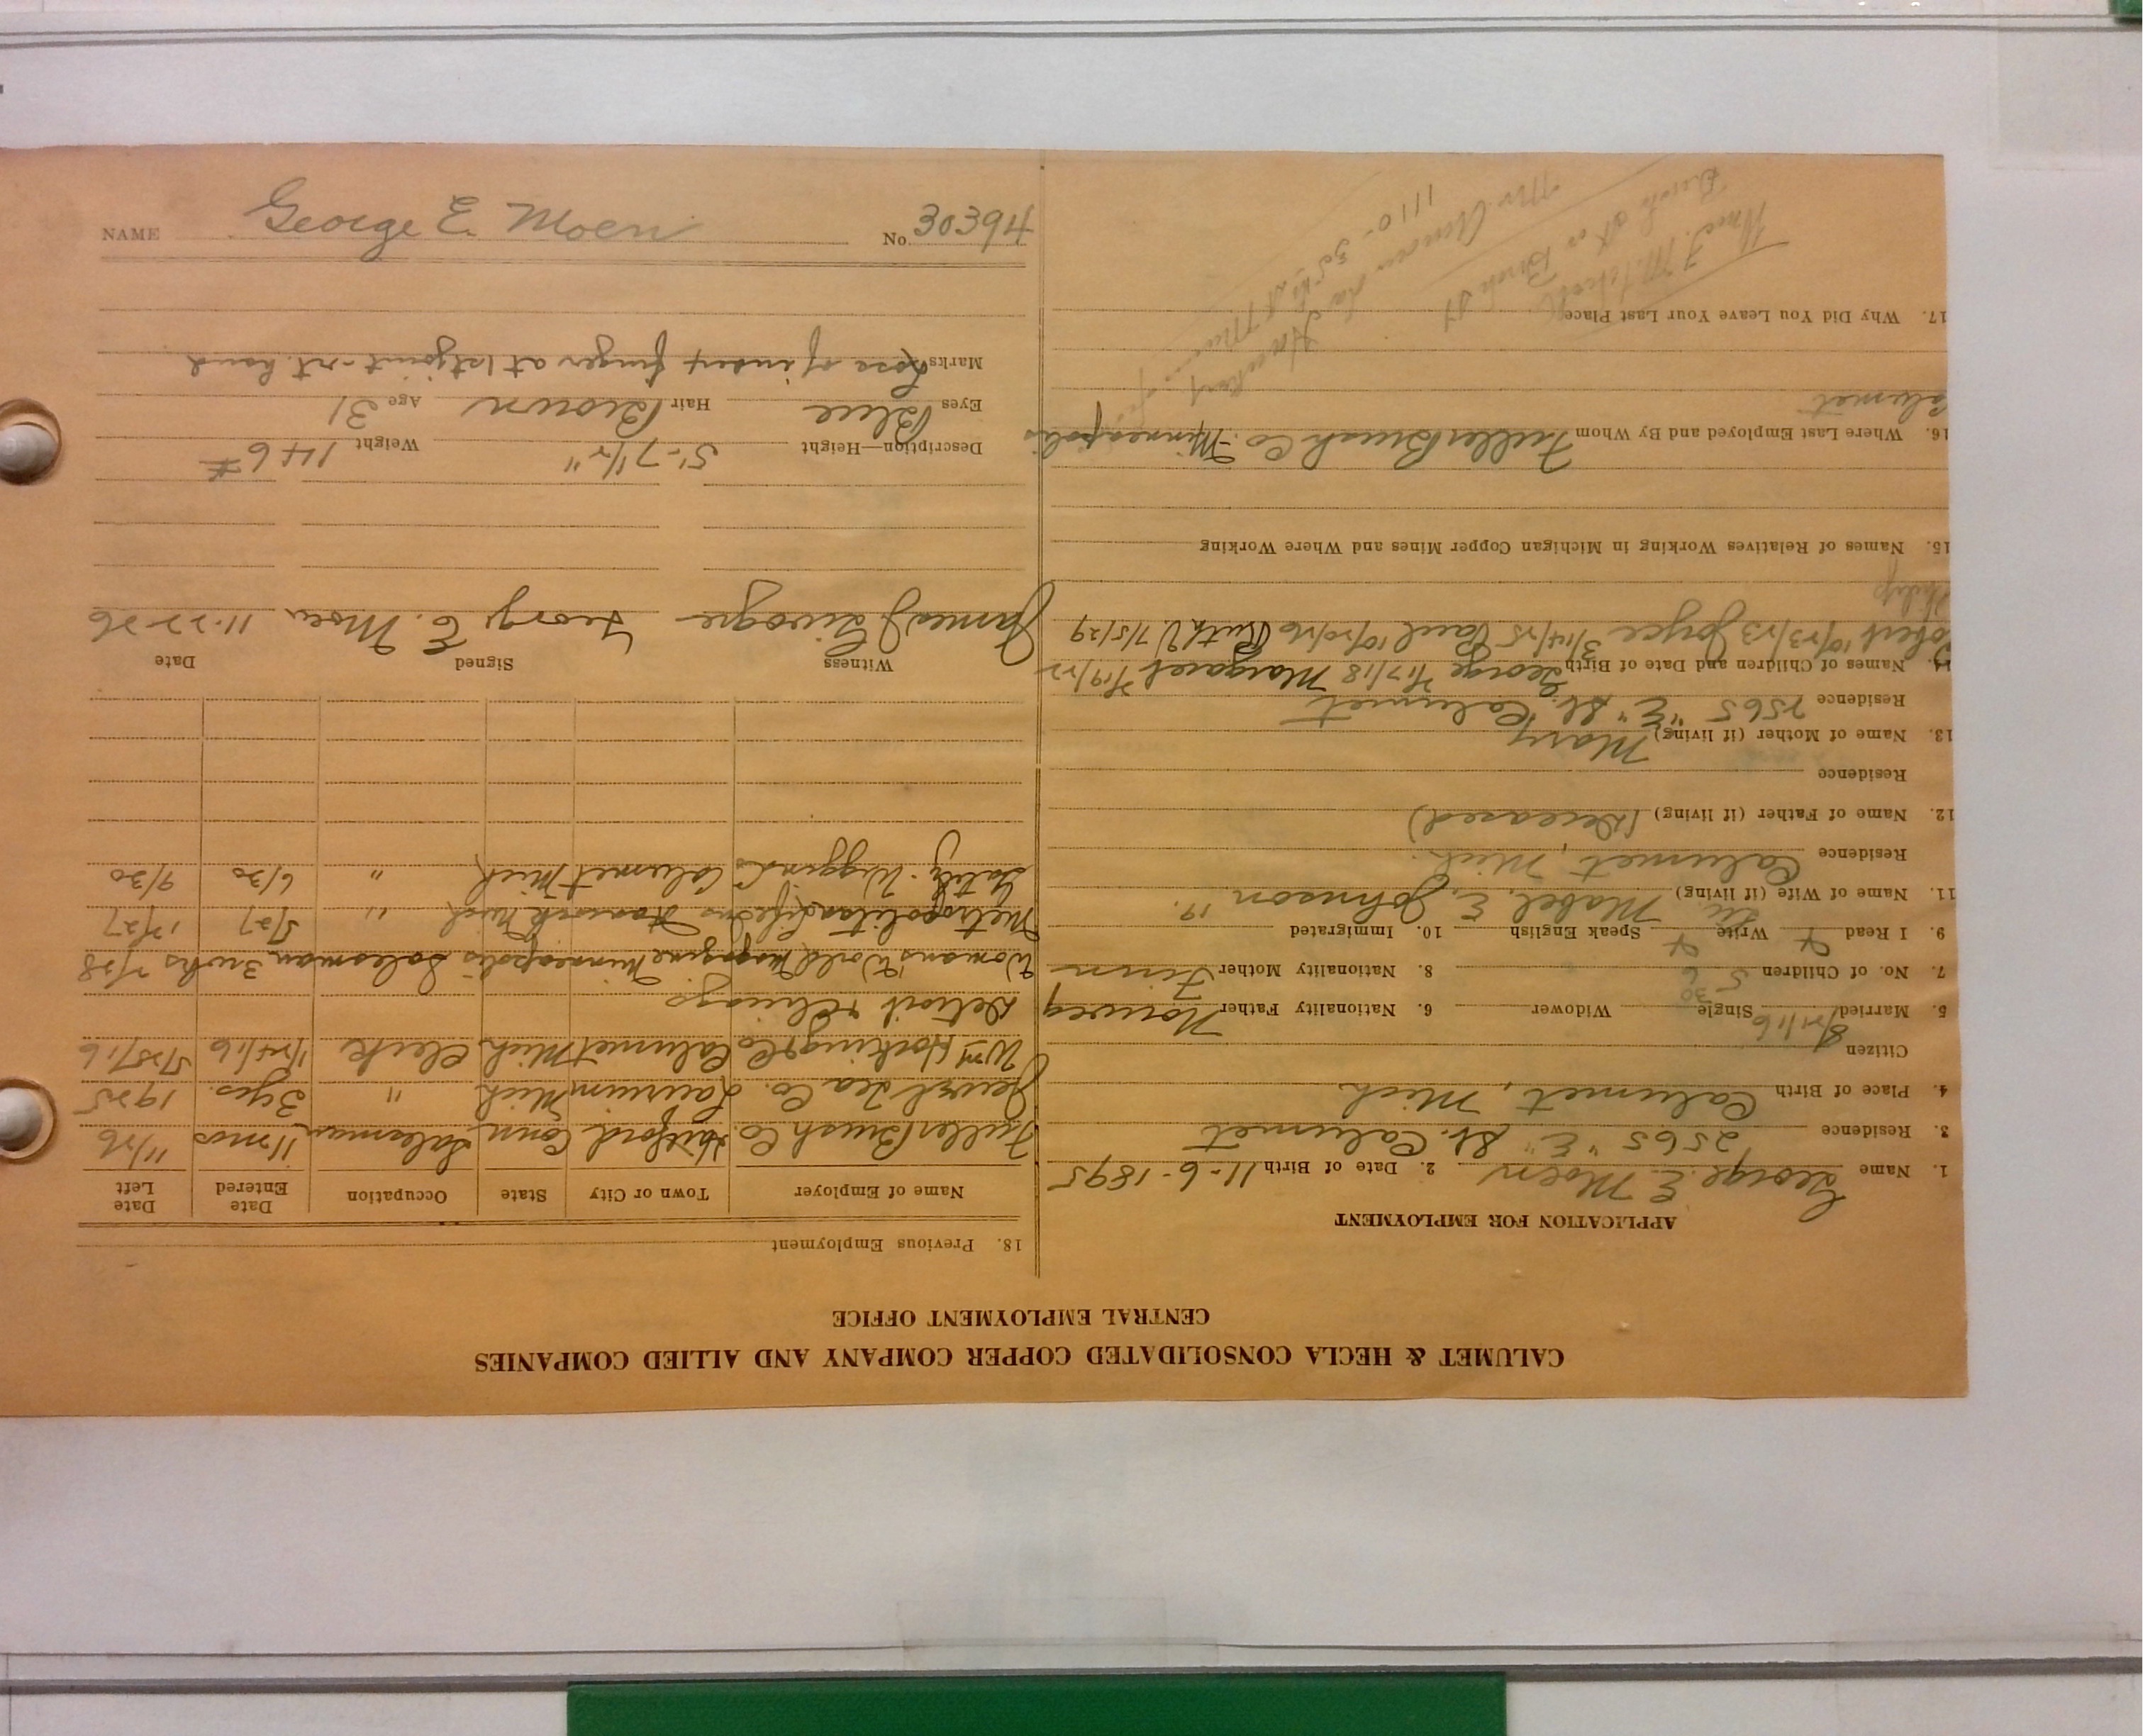 NAME George E. Moen No. 30394
CALUMET & HECLA CONSOLIDATED COPPER COMPANY AND ALLIED COMPANIES
CENTRAL EMPLOYMENT OFFICE
APPLICATION FOR EMPLOYMENT
1. Name George E. Moen 2. Date of Birth 11-6-1895
3. Residence 2565 "E" St. Calumet
4. Place of Birth Calumet, Mich
Citizen
5. Married 8/21/16 Single Widower 6. Nationality Father Norway
7. No. of Children 5 6 30 8. Nationality Mother Finn
9. I Read Write Speak English 10. Immigrated 19
11. Name of Wife (if living) Mabel E. Johnson
Residence Calumet, Mich.
12. Name of Father (if living) (Deceased)
Residence
13. Name of Mother (if living) Mary
Residence 2565 "E" St. Calumet
14. Names of Children and Date of Birth George 7/17/18 Margaret 7/19/22
Robert 10/23/23 Joyce 3/14/25 Paul 10/20/26 Ruth V. 7/5/29
Philip
15. Names of Relatives Working in Michigan Copper Mines and Where Working
16. Where Last Employed and By Whom Fuller Brush Co. Minneapolis
Calumet
17. Why Did You Leave Your Last Place
1110-35th St
18. Previous Employment
Name of Employer Town or City State Occupation Date Entered Date Left
Fuller Brush Co. Hartford Conn. Salesman 11 mos 11/26
Jewel Tea Co. Laurium Mich " 3 yrs. 1925
Wm Hosking & Co Calumet Mich Clerk 1/24/16 5/28/16
Detroit & Chicago
Woman's World Magazine Minneapolis Salesman 3 wks 2/28
Metropolitan Life Ins Hancock Mich " 5/27 12/27
Wiggins Calumet Mich " 6/30 9/30
Witness Signed Date
James J George E. Moen 11-22-26
Description—Height 5'-7 1/2" Weight 146 #
Eyes Blue Hair Brown Age 31
Marks Loss of index finger at 1st joint - rt. hand